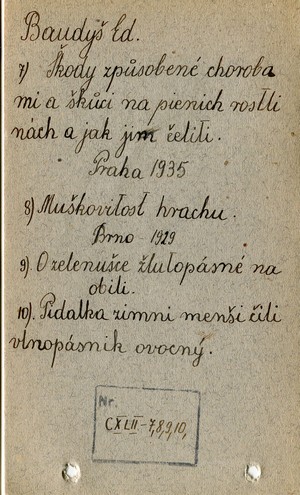 Baudyš Ed.
7) Škody způsobené choroba
mi a škůci na pienich rostli
nách a jak jim čeliti.
Praha 1935
8) Muškovitost hrachu.
Brno - 1929
9). O zelenušce žlutopásné na
obili.
10). Pidalka zimni menši čili
vlnopásnik ovocný.
Nr.
CXLII - 7,8,9,10,